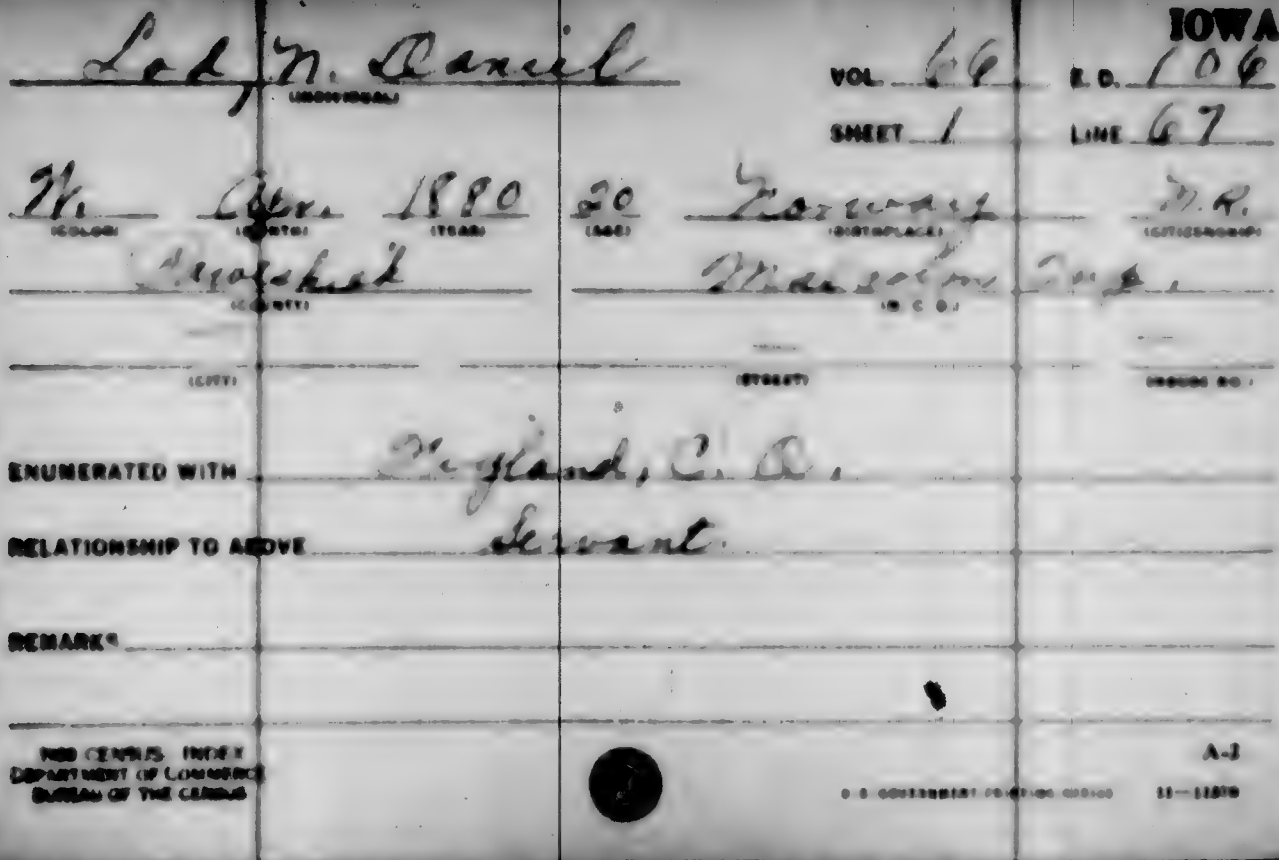 IOWA
Lod, N. Daniel
(INDIVIDUAL)
VOL. 66 E. D. 106
SHEET 1 LINE 67
W. 1880 20 Norway N.R.
(COLOR) (MONTH) (YEAR) (AGE) (BIRTHPLACE) (CITIZENSHIP)
Poweshiek Twp.
(COUNTY) (M. C. D.)
(CITY) (STREET) (HOUSE NO.)
ENUMERATED WITH C. O.
RELATIONSHIP TO ABOVE Servant
REMARKS
CENSUS INDEX
DEPARTMENT OF COMMERCE
BUREAU OF THE CENSUS
A-2
U. S. GOVERNMENT PRINTING OFFICE